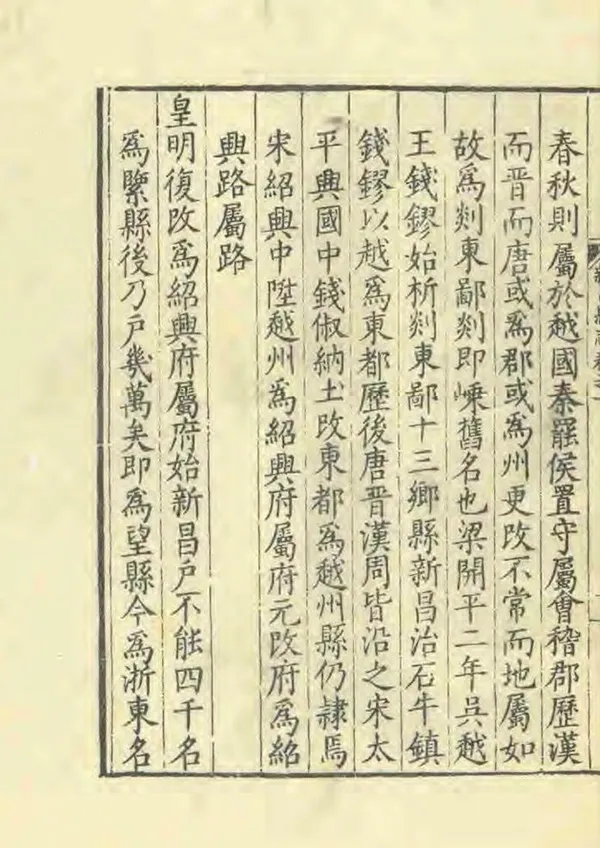 春秋則屬於越國秦罷侯置守屬會稽郡歷漢
而晉而唐或爲郡或爲州更改不常而地屬如
故爲剡東鄙剡即嵊舊名也梁開平二年吳越
王錢鏐始析剡東鄙十三鄉縣新昌治石牛鎮
錢鏐以越爲東都歷後唐晉漢周皆沿之宋太
平興國中錢俶納土改東都爲越州縣仍隷焉
宋紹興中陞越州爲紹興府屬府元改府爲紹
興路屬路
皇明復改爲紹興府屬府始新昌戶不能四千名
爲緊縣後乃戶幾萬矣即爲望縣今爲浙東名